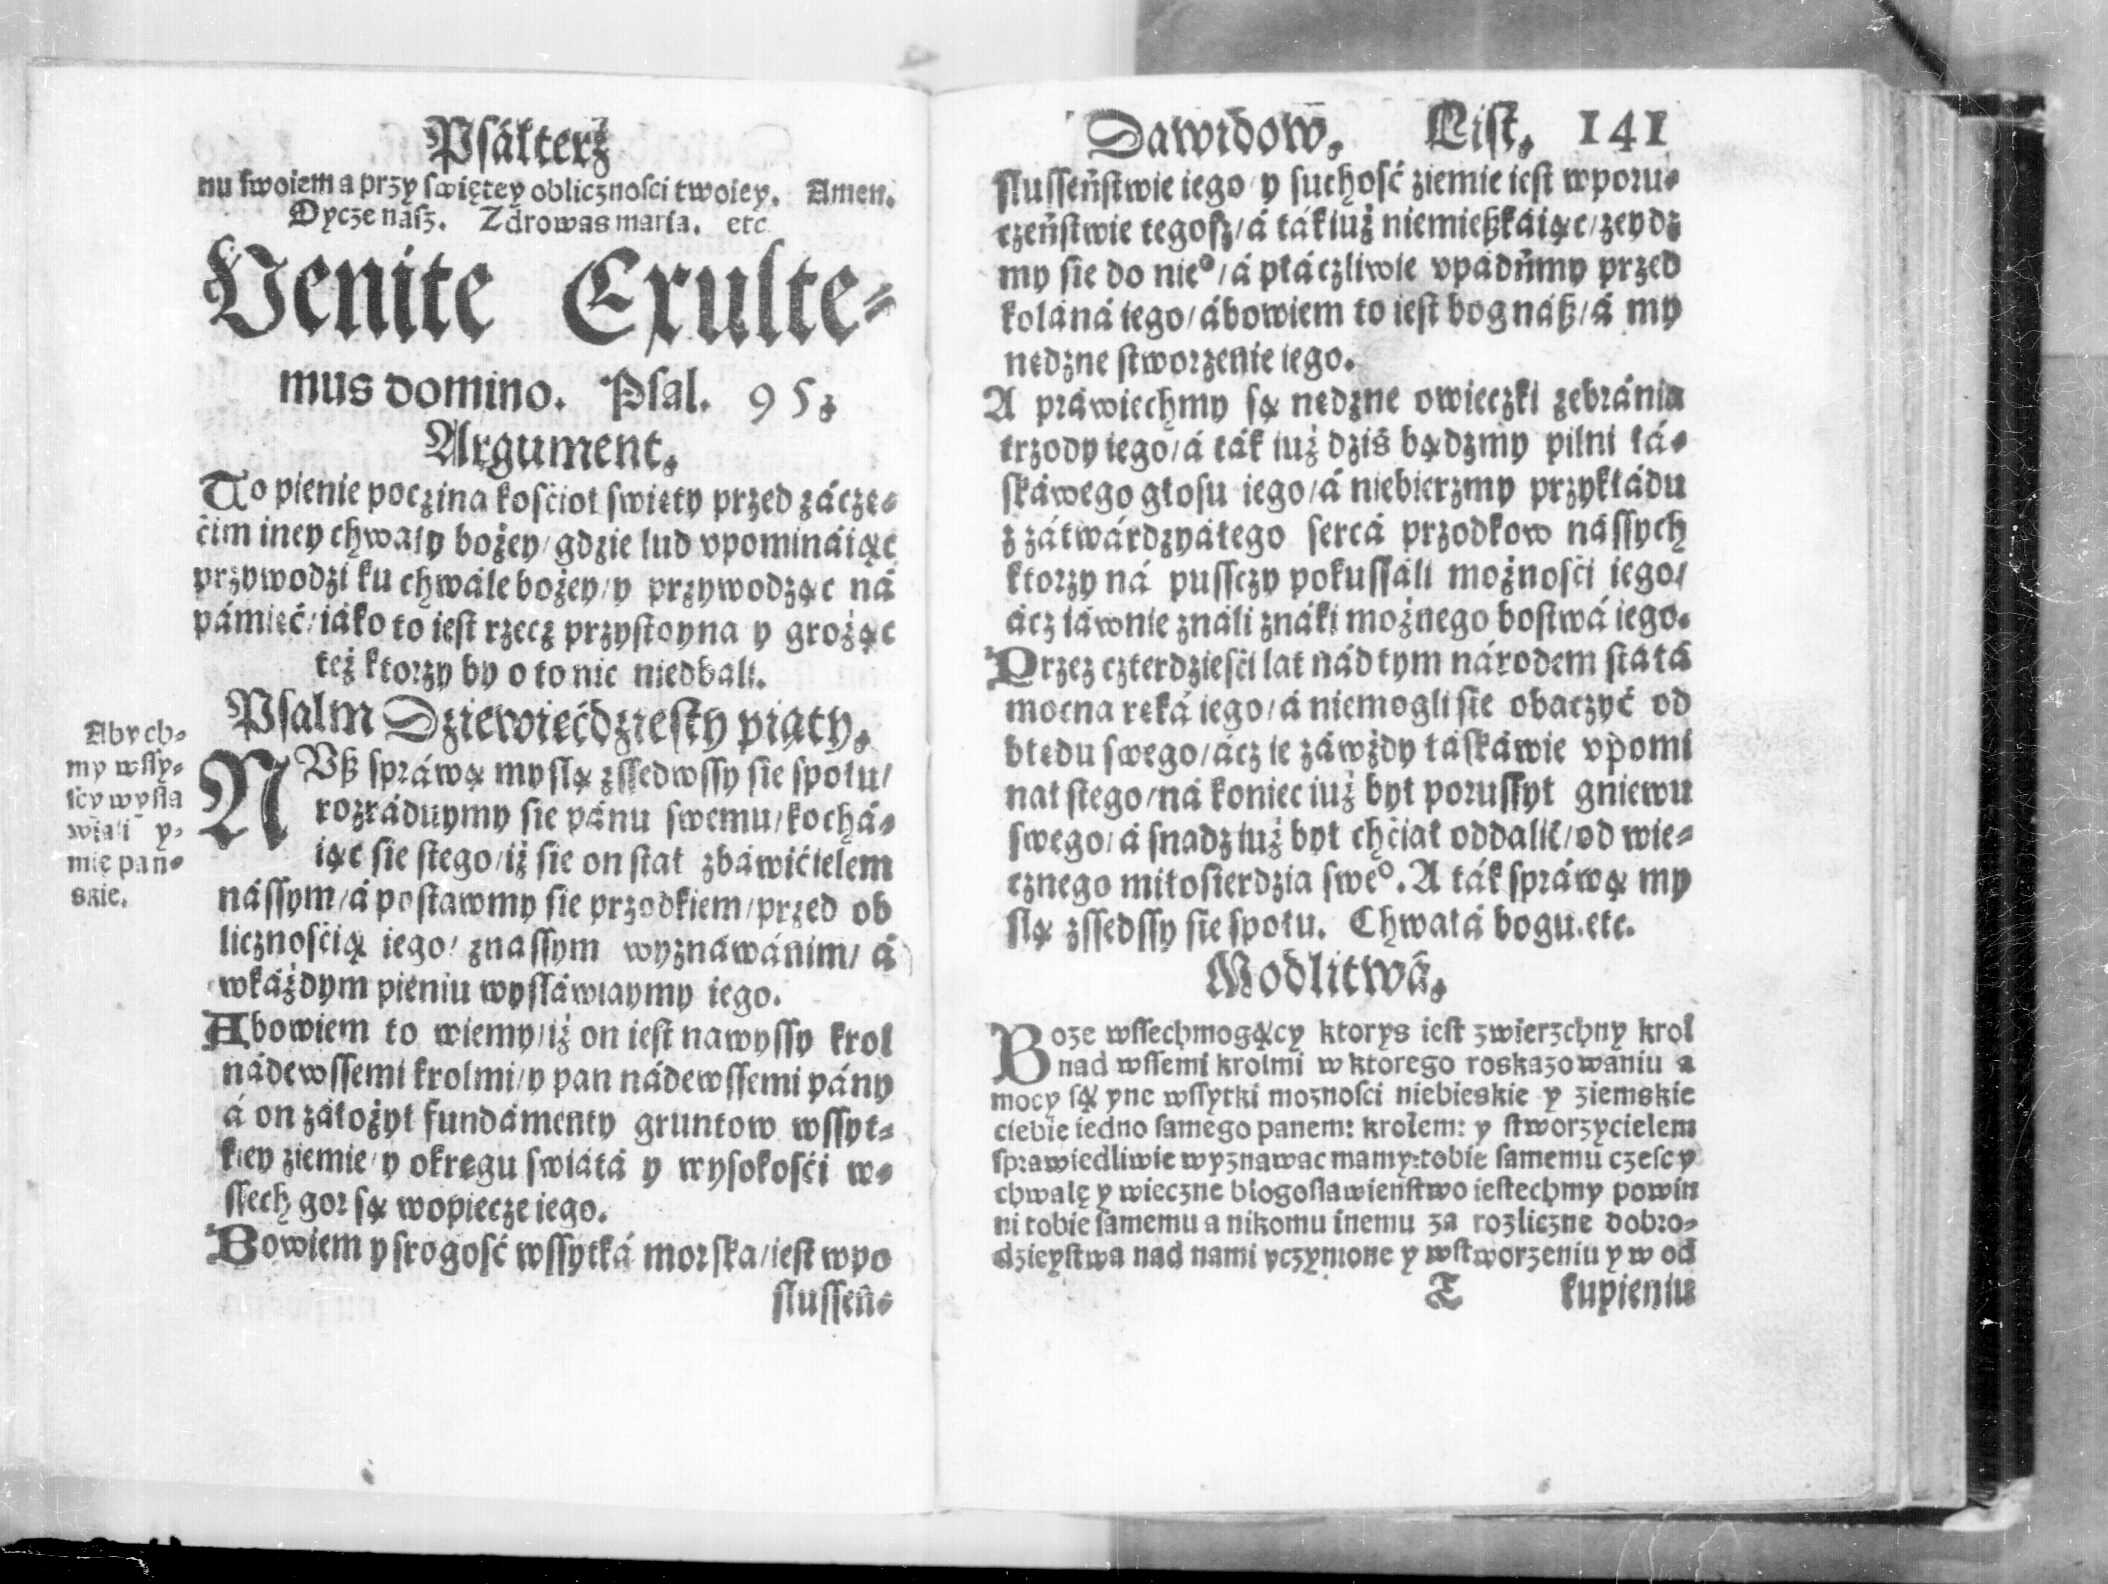 Psáłterz
nu swoiem a przy swiętey obliczności twoiey. Amen.
Oycze nász. Zdrowas maria. etc
Venite Exulte⸗
mus domino. Psal. 95.
Argument.
To pienie poczina kościoł swięty przed záczę⸗
ćim iney chwały bożey/gdzie lud vpomináiąc
przywodzi ku chwale bożey/y przywodząc ná
pámięć/iáko to iest rzecz przystoyna y grożąc
też ktorzy by o to nic niedbali.
Psalm Dziewięćdziesty piąty.
Aby ch⸗
my wssy⸗
scy wysła
wiali y⸗
mię pan⸗
skie.
NVß spráwą myslą zssedwssy sie społu/
rozráduymy sie pánu swemu/kochá⸗
iąc sie stego/iż sie on stał zbáwićielem
nássym/á postawmy sie przodkiem/przed ob
licznośćią iego/znassym wyznáwánim/á
wkáżdym pieniu wysłáwiaymy iego.
Abowiem to wiemy/iż on iest nawyssy krol
nádewssemi krolmi/y pan nádewssemi pány
á on záłożył fundámenty gruntow wssyt⸗
kiey ziemie/y okręgu swiátá y wysokośći w⸗
ssech gor są wopiecze iego.
Bowiem y srogość wssytká morska/iest wpo
slusseń⸗
Dawidow. List. 141
slusseństwie iego/y suchość ziemie iest wporu⸗
czeństwie tegosz/á ták iuż niemießkáiąc/zeydz
my sie do nieº/á płáczliwie vpádńmy przed
koláná iego/ábowiem to iest bog náß/á my
nędzne stworzenie iego.
A práwiechmy są nędzne owieczki zebránia
trzody iego/á ták iuż dziś bądzmy pilni łá⸗
skáwego głosu iego/á niebierzmy przykłádu
z zátwárdzyáłego sercá przodkow nássych
ktorzy ná pussczy pokussáli możnośći iego/
ácz iáwnie ználi znáki możnego bostwá iego.
Przez czterdzieśći lat nád tym národem stáłá
mocna ręká iego/á niemogli sie obaczyć od
błędu swego/ácz ie záwżdy łáskáwie vpomi
nał stego/ná koniec iuż był porussył gniewu
swego/á snadz iuż był chćiał oddalić/od wie⸗
cznego miłosierdzia sweº. A ták spráwą my
slą zssedssy sie społu. Chwałá bogu.etc.
Modlitwá.
Boze wssechmogący ktorys iest zwierzchny krol
nad wssemi krolmi w ktorego roskazowaniu a
mocy są yne wssytki moznosci niebieskie y ziemskie
ciebie iedno samego panem: krolem: y stworzycielem
sprawiedliwie wyznawac mamy:tobie samemu czesc y
chwalę y wieczne blogoslawienstwo iestechmy powin
ni tobie samemu a nikomu inemu za rozliczne dobro⸗
dzieystwa nad nami yczynione y wstworzeniu y w od
T kupieniu